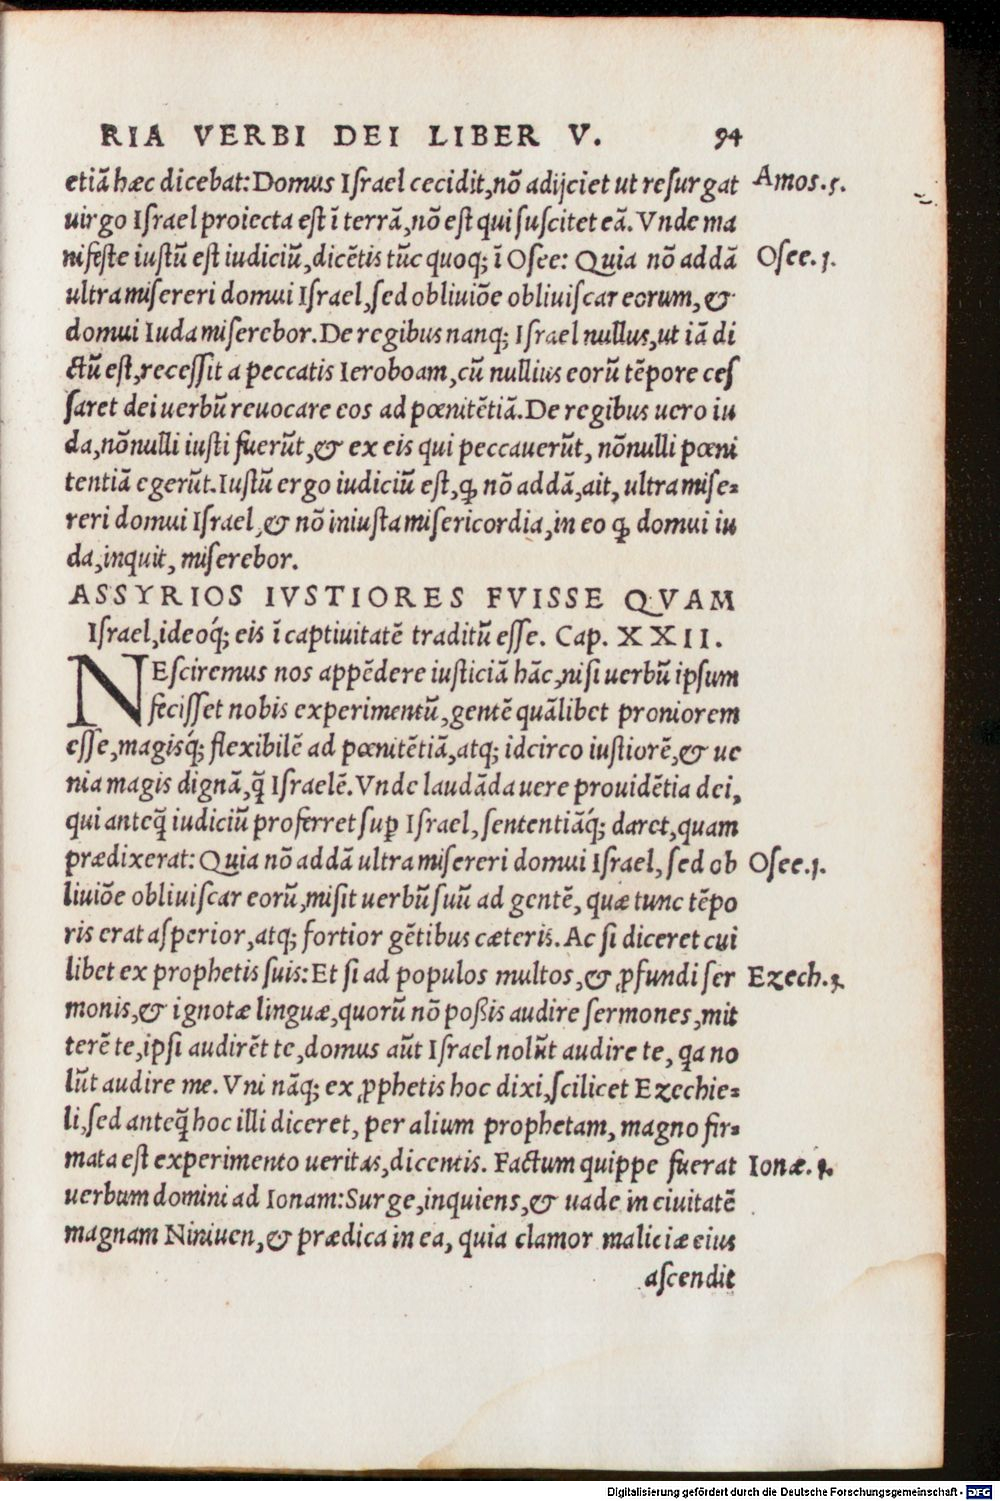 RIA VERBI DEI LIBER V. 94
etiã hæc dicebat: Domus Iſrael cecidit, nõ adijciet ut reſurgat Amos. 5.
uirgo Iſrael proiecta eſt ĩ terrã, nõ eſt qui ſuſcitet eã. Vnde ma
nifeſte iuſtũ eſt iudiciũ, dicẽtis tũc quoq; ĩ Oſee: Quia nõ addã Oſee. 1.
ultra miſereri domui Iſrael, ſed obliuiõe obliuiſcar eorum, &
domui Iuda miſerebor. De regibus nanq; Iſrael nullus, ut iã di
ctũ eſt, receſſit a peccatis Ieroboam, cũ nullius eorũ tẽpore ceſ
ſaret dei uerbũ reuocare eos ad pœnitẽtiã. De regibus uero iu
da, nõnulli iuſti fuerũt, & ex eis qui peccauerũt, nõnulli pœni
tentiã egerũt. Iuſtũ ergo iudiciũ eſt, ꝙ nõ addã, ait, ultra miſe=
reri domui Iſrael, & nõ iniuſta miſericordia, in eo ꝙ domui iu
da, inquit, miſerebor.
ASSYRIOS IVSTIORES FVISSE QVAM
Iſrael, ideoq́; eis ĩ captiuitatẽ traditũ eſſe. Cap. XXII.
NEſciremus nos appẽdere iuſticiã hãc, niſi uerbũ ipſum
feciſſet nobis experimentũ, gentẽ quãlibet proniorem
eſſe, magisq́; flexibilẽ ad pœnitẽtiã, atq; idcirco iuſtiorẽ, & ue
nia magis dignã, q̃ Iſraelẽ. Vnde laudãda uere prouidẽtia dei,
qui anteq̃ iudiciũ proferret suꝑ Iſrael, ſententiãq́; daret, quam
prædixerat: Quia nõ addã ultra miſereri domui Iſrael, ſed ob Oſee. 1.
liuiõe obliuiſcar eorũ, miſit uerbũ ſuũ ad gentẽ, quæ tunc tẽpo
ris erat aſperior, atq; fortior gẽtibus cæteris. Ac ſi diceret cui
libet ex prophetis ſuis: Et ſi ad populos multos, & ꝓfundi ſer Ezech. 3.
monis, & ignotæ linguæ, quorũ nõ poßis audire ſermones, mit
terẽ te, ipſi audirẽt te, domus aũt Iſrael nolũt audire te, qa no
lũt audire me. Vni nãq; ex ꝓphetis hoc dixi, ſcilicet Ezechie=
li, ſed anteq̃ hoc illi diceret, per alium prophetam, magno fir=
mata eſt experimento ueritas, dicentis. Factum quippe fuerat Ionæ. 1.
uerbum domini ad Ionam: Surge, inquiens, & uade in ciuitatẽ
magnam Niniuen, & prædica in ea, quia clamor maliciæ eius
aſcendit
Digitalisierung gefördert durch die Deutsche Forschungsgemeinschaft - DFG